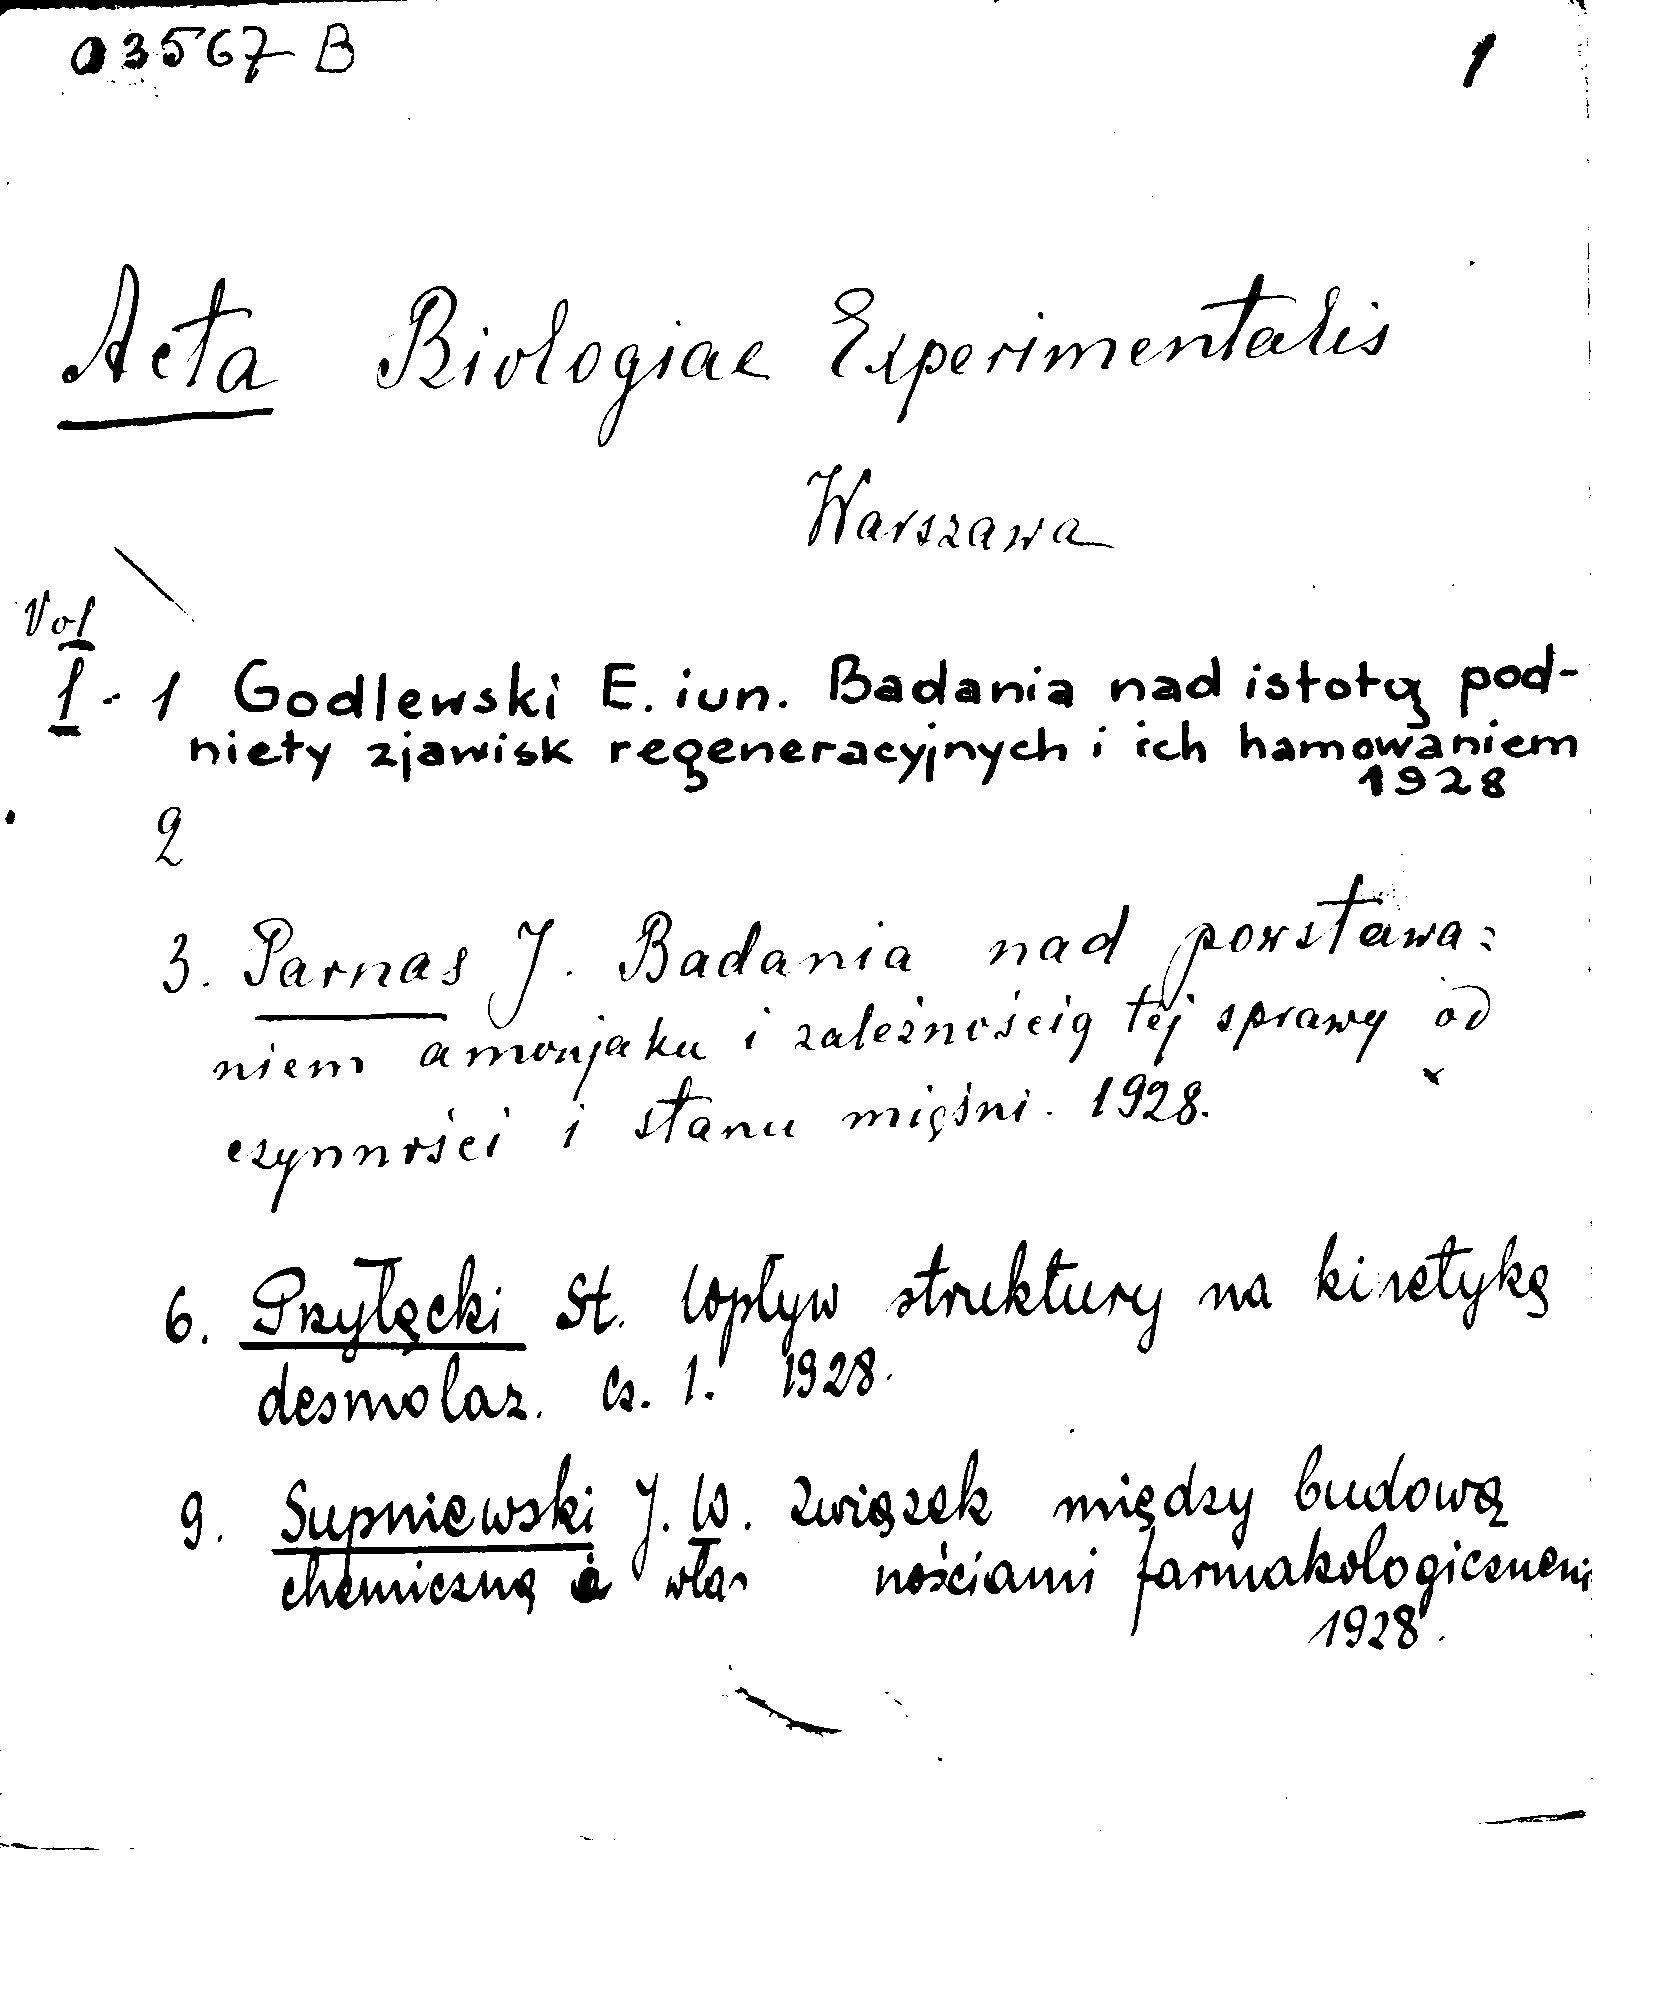 03567 B 1
Acta Biologiae Experimentalis
Warszawa
Vol
I - 1 Godlewski E. iun. Badania nad istotą pod-
niety zjawisk regeneracyjnych i ich hamowaniem
1928
2
3. Parnas J. Badania nad powstawa=
niem amonjaku i zależnością tej sprawy od
czynności i stanu mięśni. 1928.
6. Przyłęcki St. Wpływ struktury na kinetykę
desmolaz. Cz. 1. 1928.
9. Supniewski J. W. Związek między budową
chemiczną a włas nościami farmakologicznemi
1928.